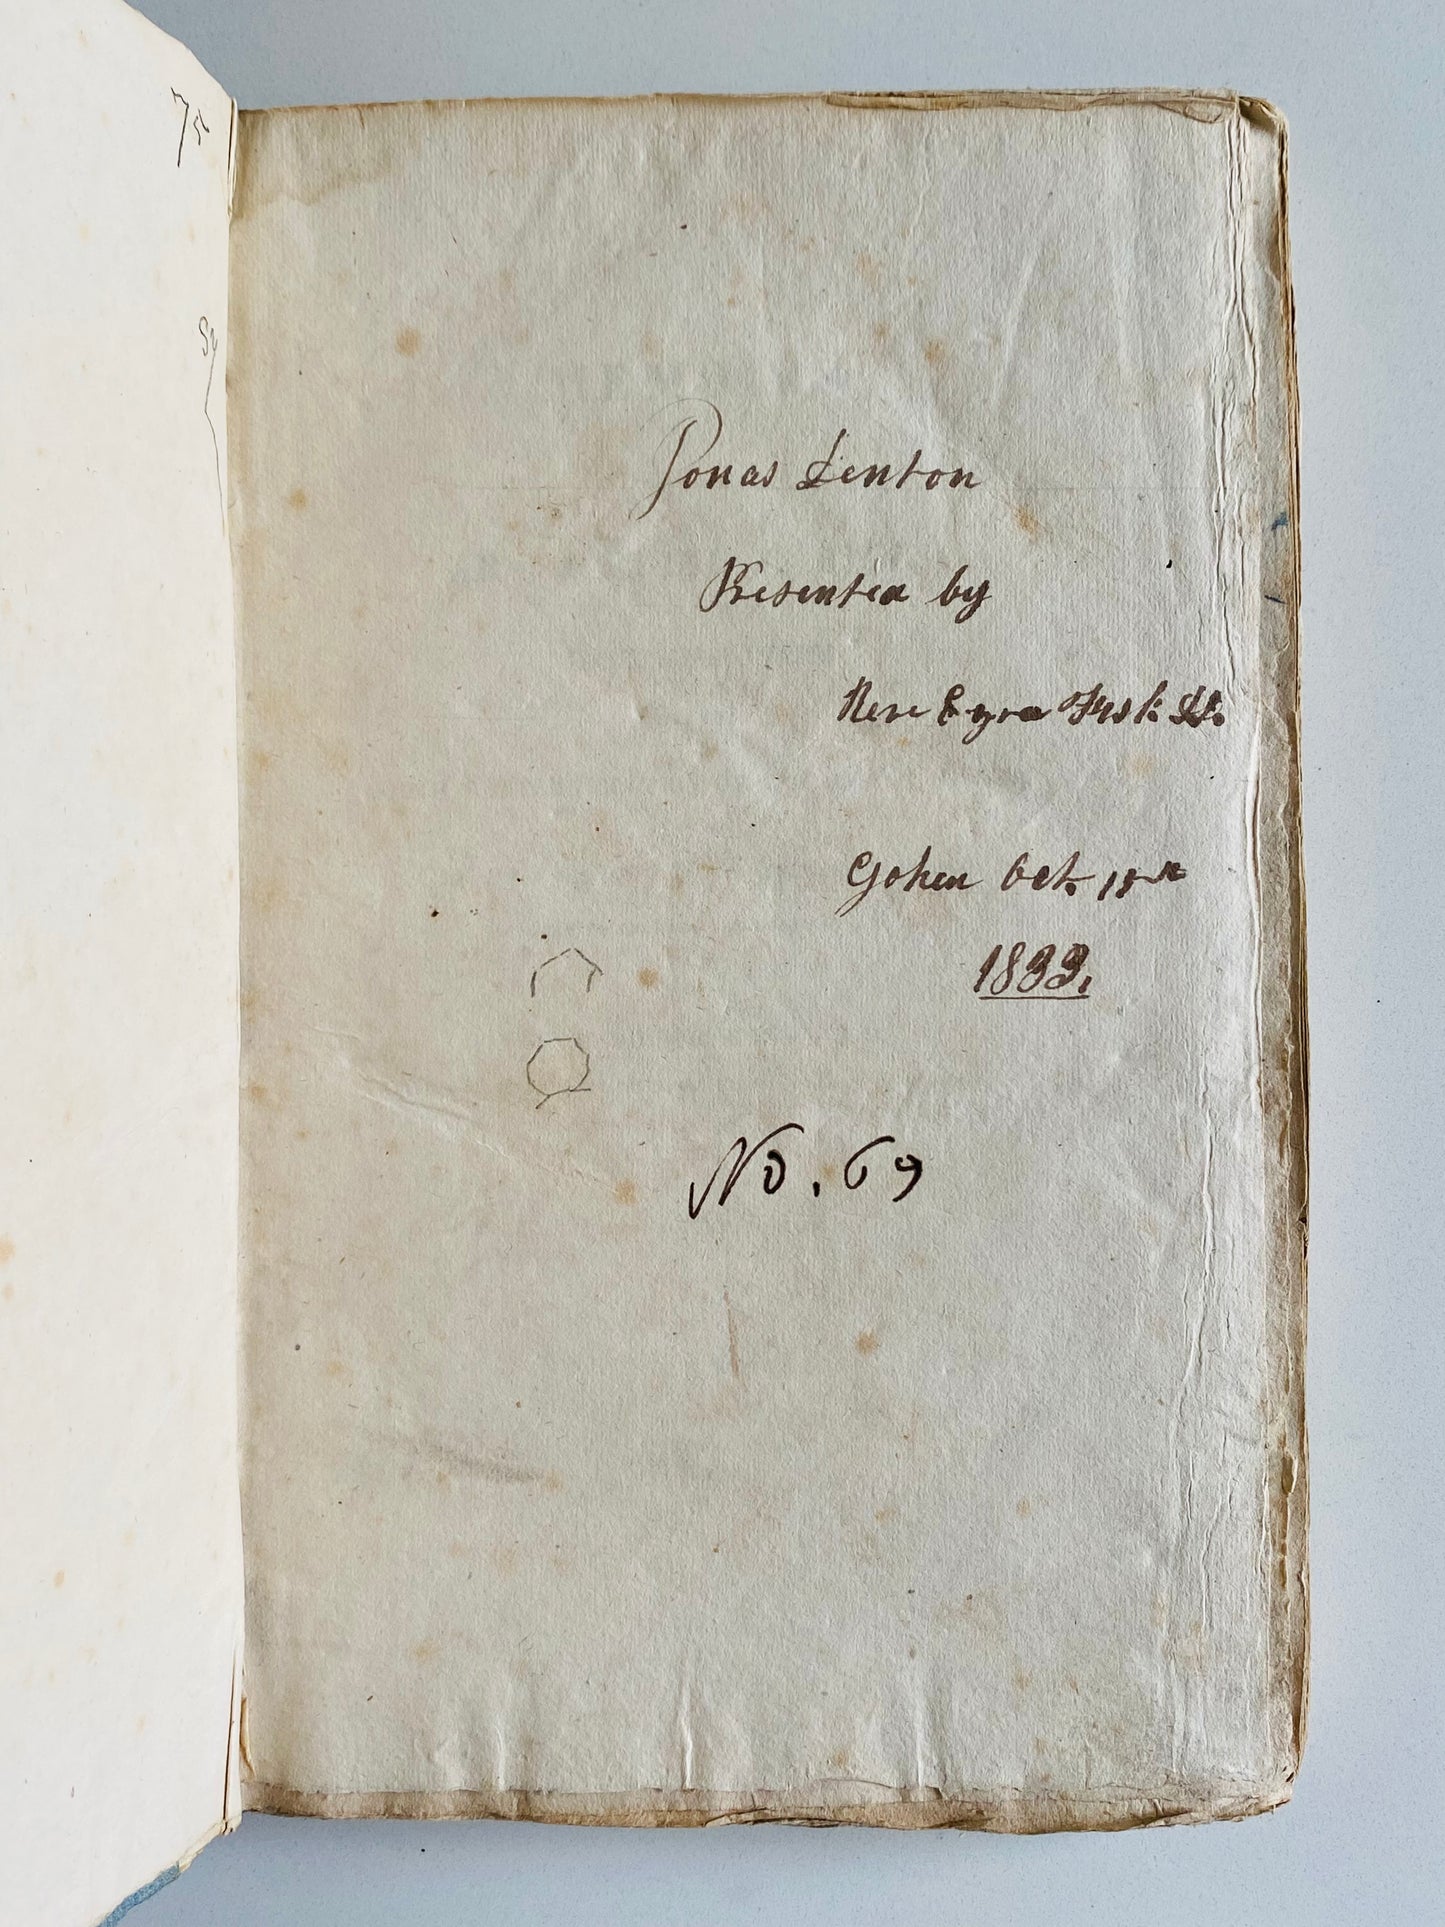 75
Jonas Denton
Presented by
Revd Ezra Fisk D.D.
Goshen Oct. 18th
1833.
No. 69